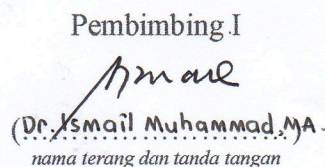 Pembimbing I
(Dr. Ismail Muhammad, MA.
nama terang dan tanda tangan